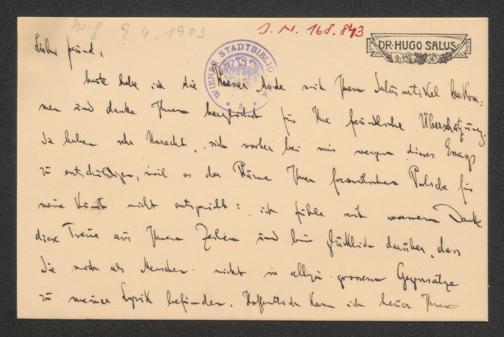 Prag 9. 4. 1903
J. N. 168.843
DR. HUGO SALUS.
WIENER STADTBIBLIO
Lieber Freund,
heute habe ich die Wiener Mode mit Ihrem Salusartikel bekom-
men und danke Ihnen herzlichst für Ihre freundliche Überschätzung.
Sie haben sehr Unrecht, sich vorher bei mir wegen dieses Essays
zu entschuldigen, weil es der Wärme Ihrer freundlichen für
meine nicht entspricht: ich fühle mit warmem Danke
diese Treue aus Ihren Zeilen und bin glücklich darüber, dass
Sie mich als Menschen nicht in allzu grossem Gegensatze
zu meiner Lyrik befinden. Hoffentlich kann ich heuer Ihnen